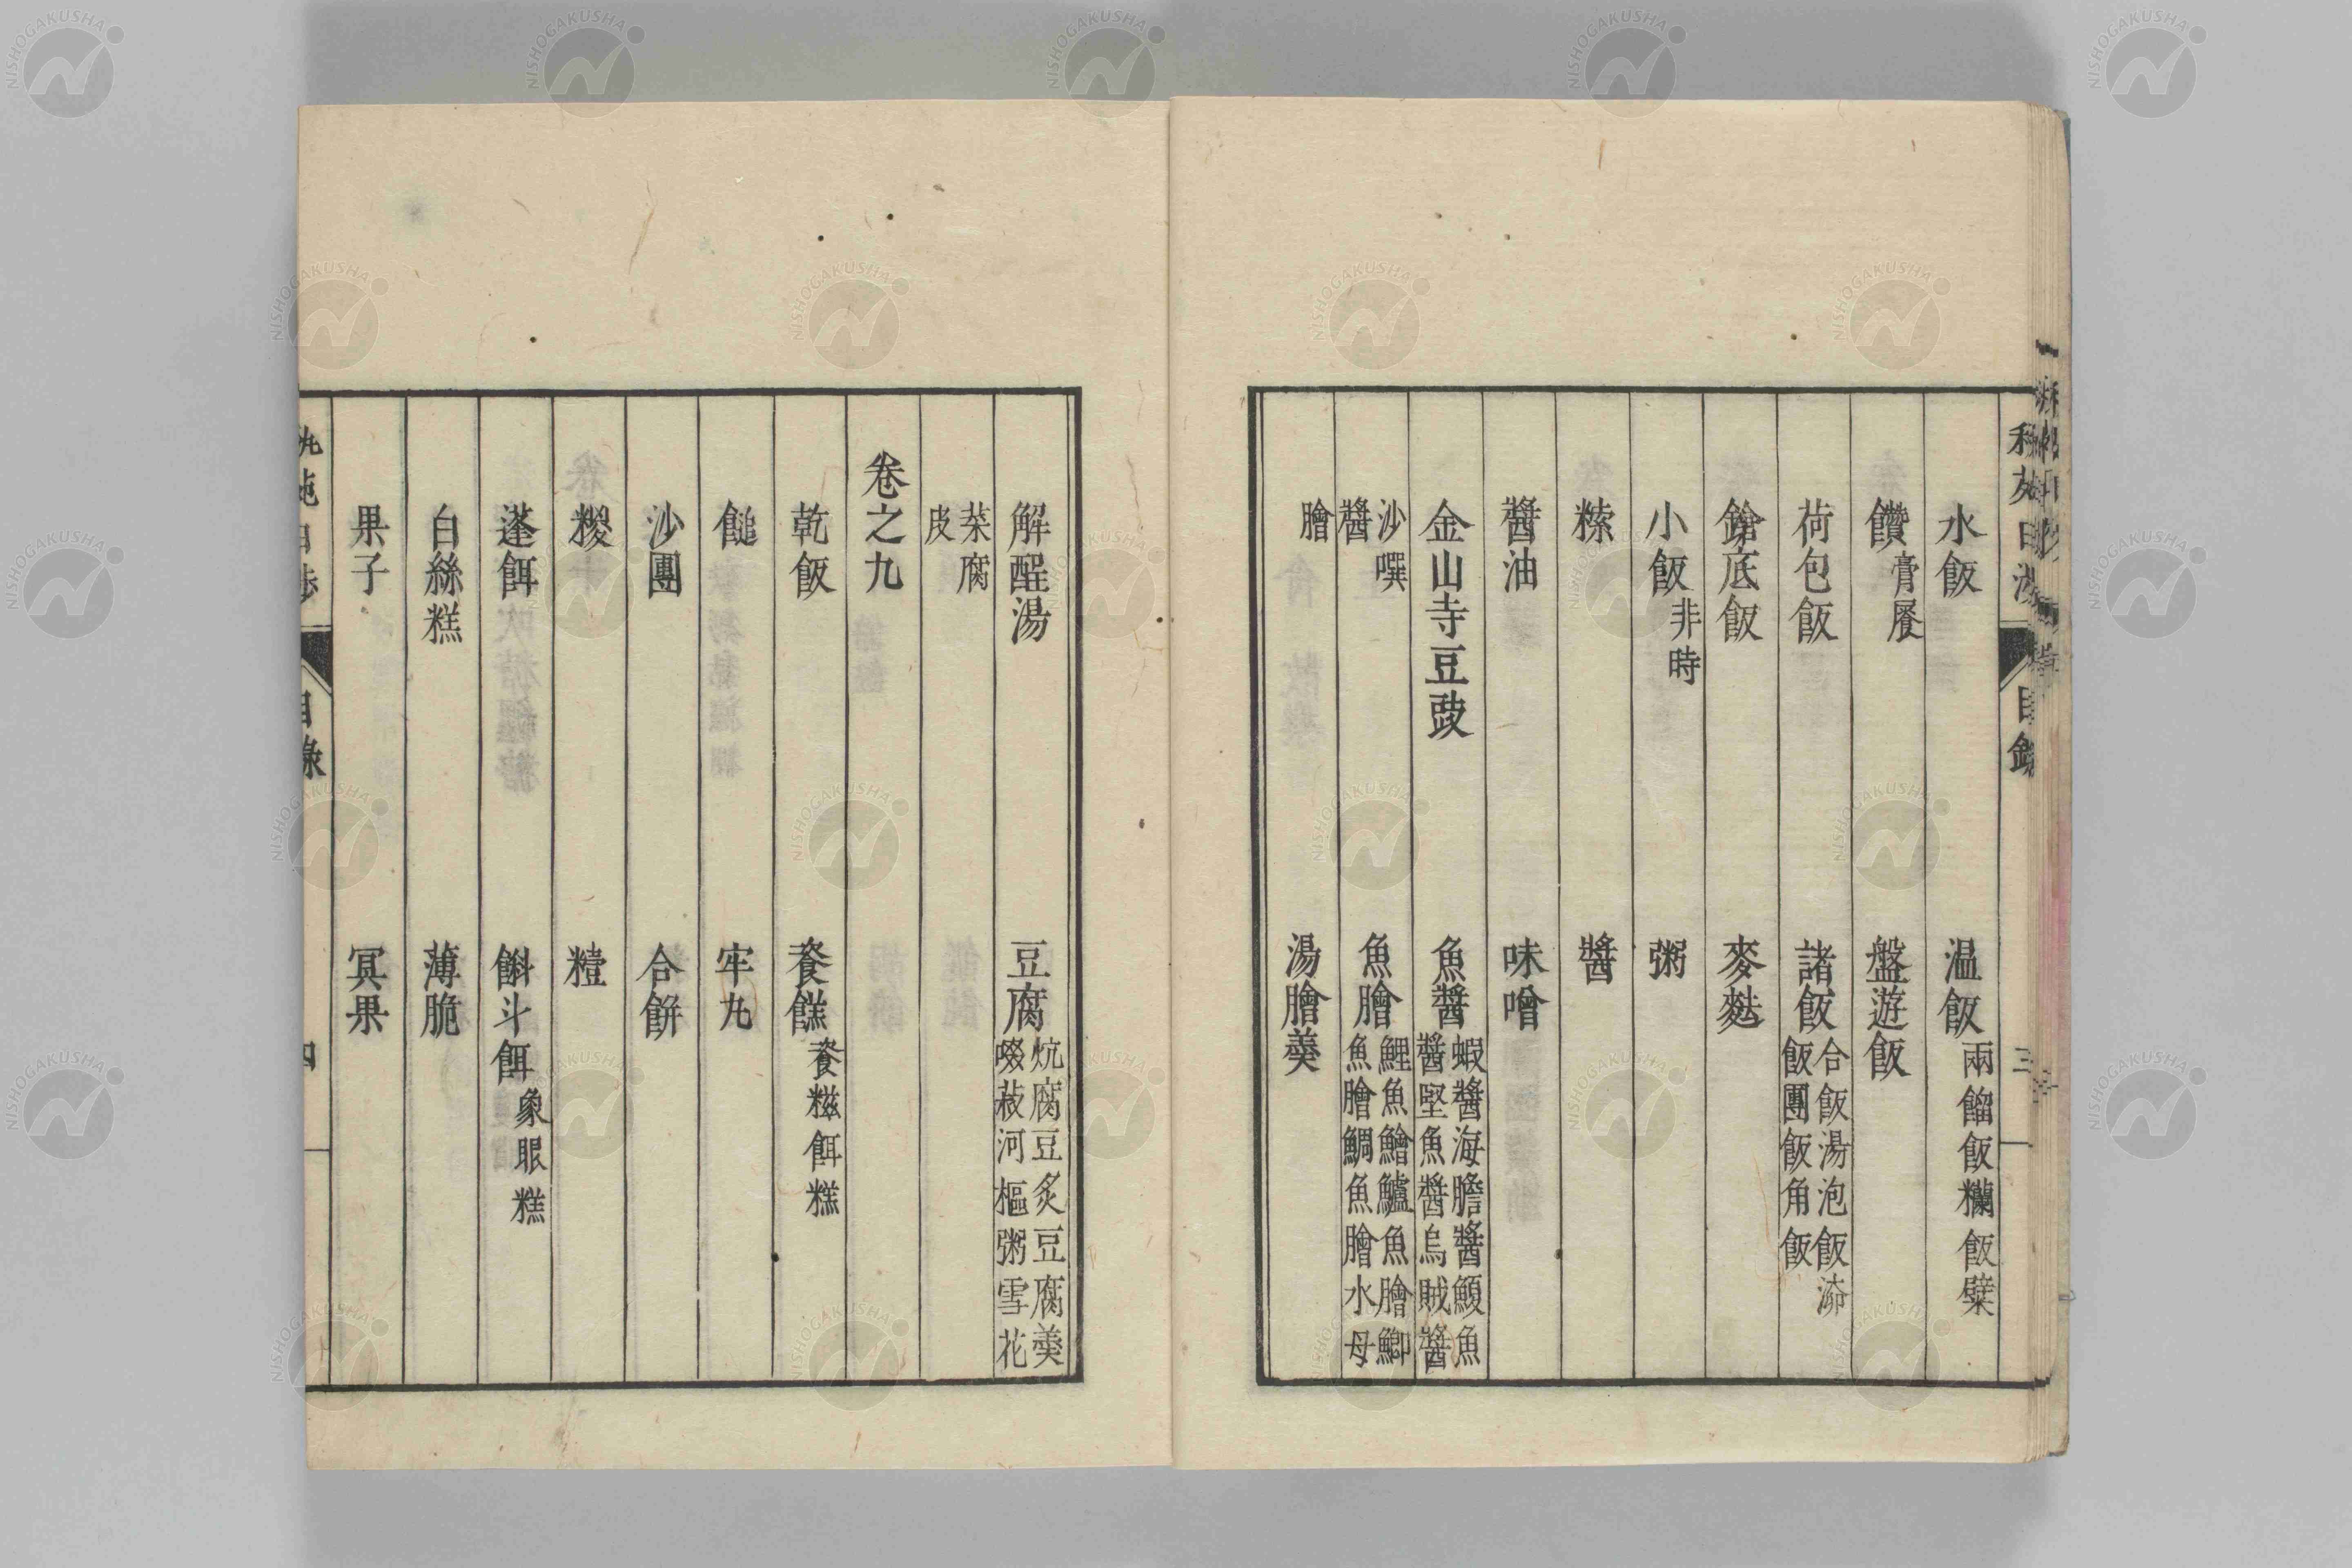 水飯 温飯 兩餾飯 糷飯 糪
饡 膏餍 盤遊飯
荷包飯 諸飯 合飯 湯泡飯 飯團 飯角飯
鎗底飯 麥麩
小飯 非時 粥
𥻦 醬
醬油 味噌
金山寺豆豉 魚醬 蝦醬 海膽醬 魚醬 堅魚醬 烏賊醬
沙噀醬 魚膾 鯉魚鱠 鱸魚膾 鯽魚膾 鯛魚膾 水母
膾 湯膾羮
目錄
三
解酲湯 豆腐 炕腐 豆炙 豆腐羮 啜菽 河樞粥 雪花
菜腐皮
卷之九
乾飯 餈餻 餈糍 餌糕
䭔 牢丸
沙團 合餅
糭 䊲
蓬餌 䬪斗餌 象眼糕
白絲糕 薄脆
果子 冥果
目錄
四
NISHOGAKUSHA